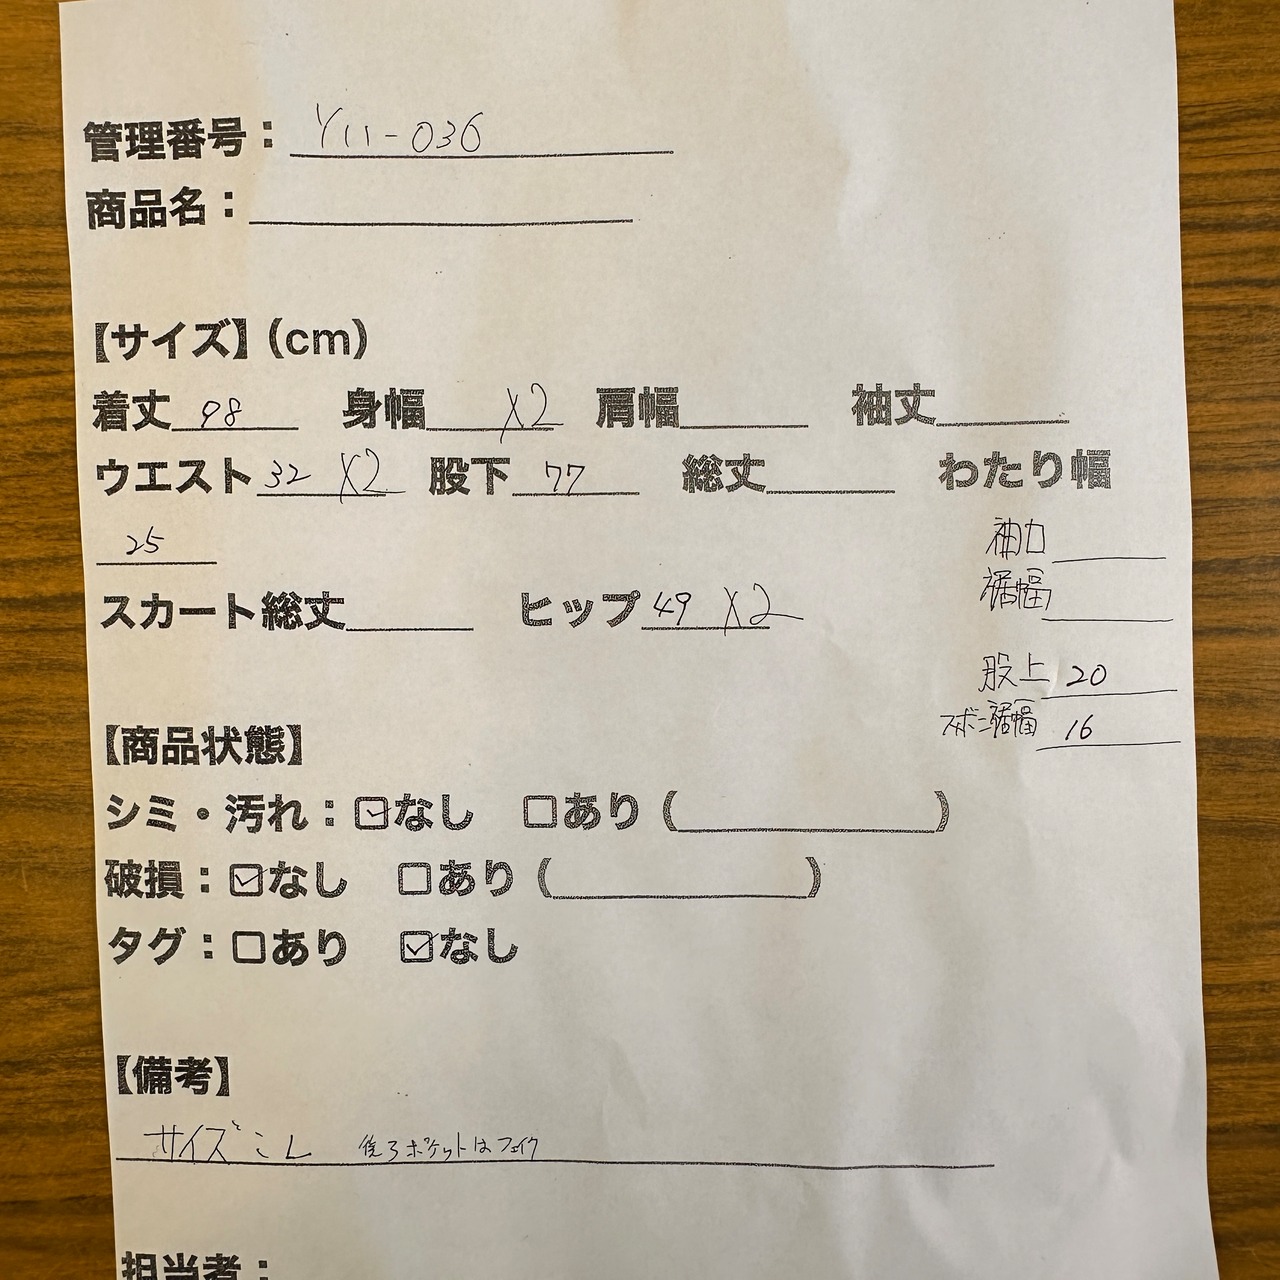 管理番号：Y11-036
商品名：
【サイズ】(cm)
着丈 98 身幅 X2 肩幅 袖丈
ウエスト 32 X2 股下 77 総丈 わたり幅
25
袖口
裾幅
スカート総丈 ヒップ 49 X2
股上 20
ズボン裾幅 16
【商品状態】
シミ・汚れ：☑なし □あり( )
破損：☑なし □あり( )
タグ：□あり ☑なし
【備考】
サイズ：L 後ろポケットはフェイク
担当者：